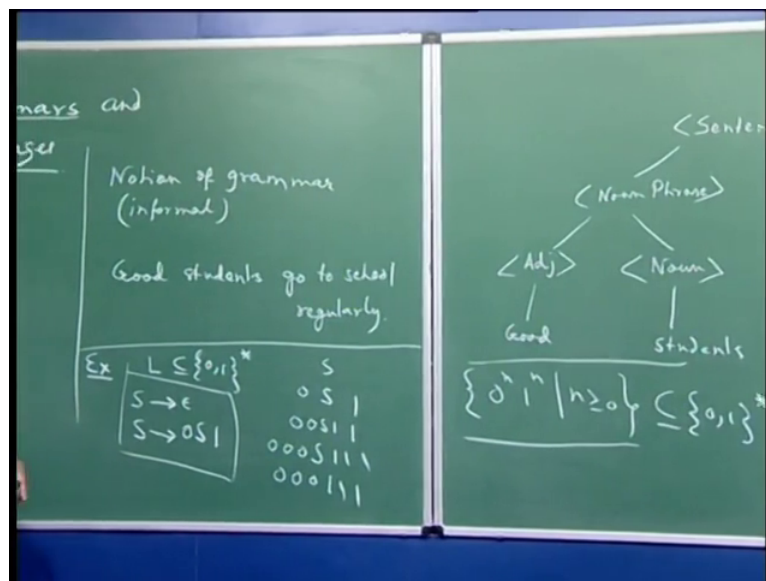 mars and
ges
Notion of grammar
(informal)
Good students go to school
regularly.
Ex L ⊆ {0,1}*
S → ε
S → 0S1
S
0S1
00S11
000S111
000111
<Senten
<Noun Phrase>
<Adj> <Noun>
Good students
{0ⁿ1ⁿ | n≥0} ⊆ {0,1}*